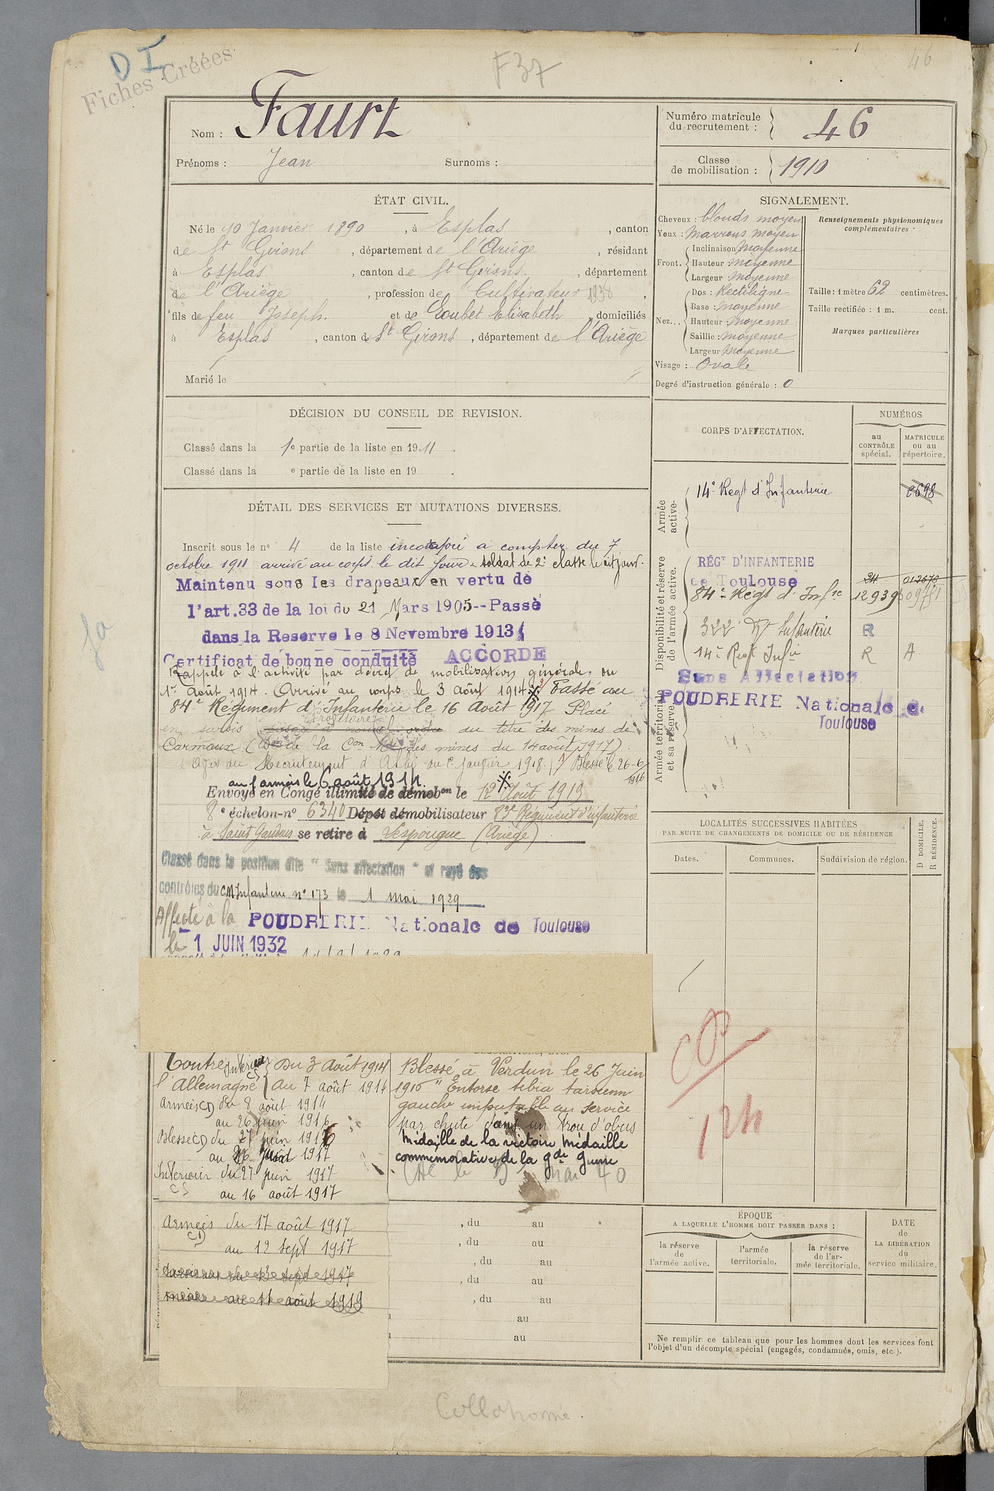 DI
Fiches Créées
F37
46
Nom : Faurt
Prénoms : Jean Surnoms :
Numéro matricule du recrutement : 46
Classe de mobilisation : 1910
ÉTAT CIVIL.
Né le 10 Janvier 1890, à Esplas, canton
de St Girons, département de l'Ariège, résidant
à Esplas, canton de St Girons, département
de l'Ariège, profession de Cultivateur
fils de feu Joseph et de Loubet Elisabeth, domiciliés
à Esplas, canton de St Girons, département de l'Ariège
Marié le
SIGNALEMENT.
Cheveux : blonds moyen
Yeux : Marrons moyen
Front. Inclinaison moyenne
Hauteur moyenne
Largeur moyenne
Nez... Dos : Rectiligne
Base : moyenne
Hauteur : moyenne
Saillie : moyenne
Largeur moyenne
Visage : Ovale
Degré d'instruction générale : 0
Renseignements physionomiques complémentaires :
Taille : 1 mètre 62 centimètres.
Taille rectifiée : 1 m. cent.
Marques particulières
DÉCISION DU CONSEIL DE REVISION.
Classé dans la 1e partie de la liste en 1911.
Classé dans la e partie de la liste en 19 .
CORPS D'AFFECTATION.
NUMÉROS
au CONTRÔLE spécial.
MATRICULE ou au répertoire.
Armée active.
14e Regt d'Infanterie 0698
Disponibilité et réserve de l'armée active.
RÉGT D'INFANTERIE
de Toulouse
84e Regt d'Infie 12939
322 Rt Infanterie R
14e Regt Infie R A
Sans Affectation
Armée territoriale et sa réserve.
POUDRERIE Nationale de
Toulouse
DÉTAIL DES SERVICES ET MUTATIONS DIVERSES.
Inscrit sous le no 4 de la liste incorporé à compter du 7
octobre 1911 arrivé au corps le dit jour soldat de 2e classe le dit jour.
Maintenu sous les drapeaux en vertu de
l'art.33 de la loi du 21 Mars 1905--Passé
dans la Réserve le 8 Novembre 1913
Certificat de bonne conduite ACCORDÉ
Rappelé à l'activité par décret de mobilisation générale du
1er août 1914. Arrivé au corps le 3 août 1914. Passé au
84e Régiment d'Infanterie le 16 Août 1917 Placé
en sursis au titre des mines de
Carmaux des mines du 14 août 1917)
Blessé le 26-6
1916
aux armées le 6 août 1914.
Envoyé en Congé illimité de démobon le 12 Août 1919
8e échelon no 6340 Dépôt démobilisateur 83e Régiment d'infanterie
à Saint Gaudens se retire à Lespougue (Ariège)
Classé dans la position dite "Sans affectation" et rayé des
contrôles du CM Infanterie no 173 le 1 mai 1929
Affecté à la POUDRERIE Nationale de Toulouse
le 1 JUIN 1932
LOCALITÉS SUCCESSIVES HABITÉES
PAR SUITE DE CHANGEMENTS DE DOMICILE OU DE RÉSIDENCE
Dates. Communes. Subdivision de région.
D DOMICILE.
R RÉSIDENCE.
CP
124
Contre l'Allemagne
Intérieur du 3 Août 1914
au 7 août 1914
Armées du 8 août 1914
au 26 juin 1916
Blessé du 27 juin 1916
au 1917
Intérieur du 27 juin 1917
CS au 16 août 1917
Armées du 17 août 1917
au 12 sept 1917
Blessé à Verdun le 26 Juin
1916 "Entorse tibia tarsienne
gauche imputable au service
par chute dans un trou d'obus
Médaille de la victoire Médaille
commémorative de la gde guerre
, du au
, du au
, du au
, du au
, du au
au
au
ÉPOQUE
A LAQUELLE L'HOMME DOIT PASSER DANS :
la réserve de l'armée active.
l'armée territoriale.
la réserve de l'armée territoriale.
DATE de LA LIBÉRATION du service militaire.
Ne remplir ce tableau que pour les hommes dont les services font
l'objet d'un décompte spécial (engagés, condamnés, omis, etc.).